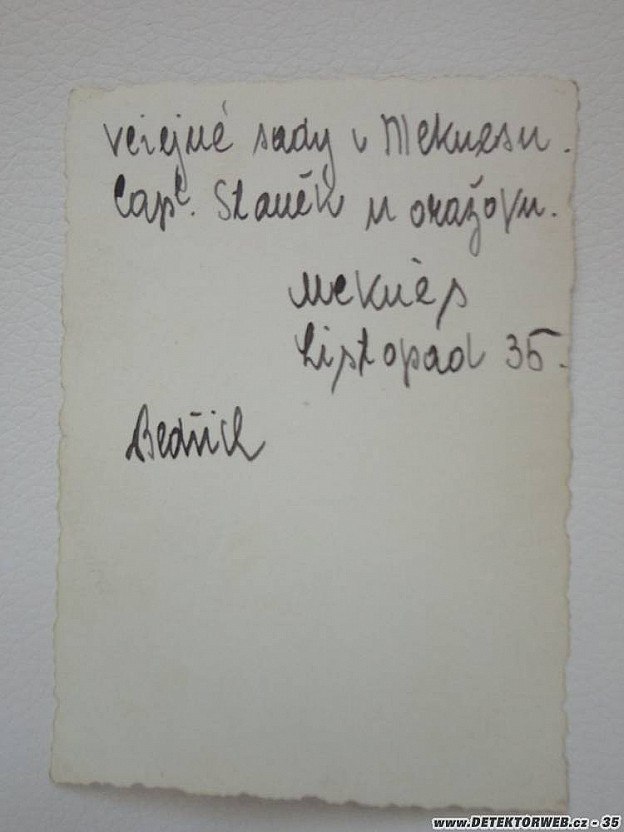 veřejné sady v Meknesu.
Capt. Staněk u oražovn.
Meknès
Listopad 35.
Bedřich
www.DETEKTORWEB.cz - 35